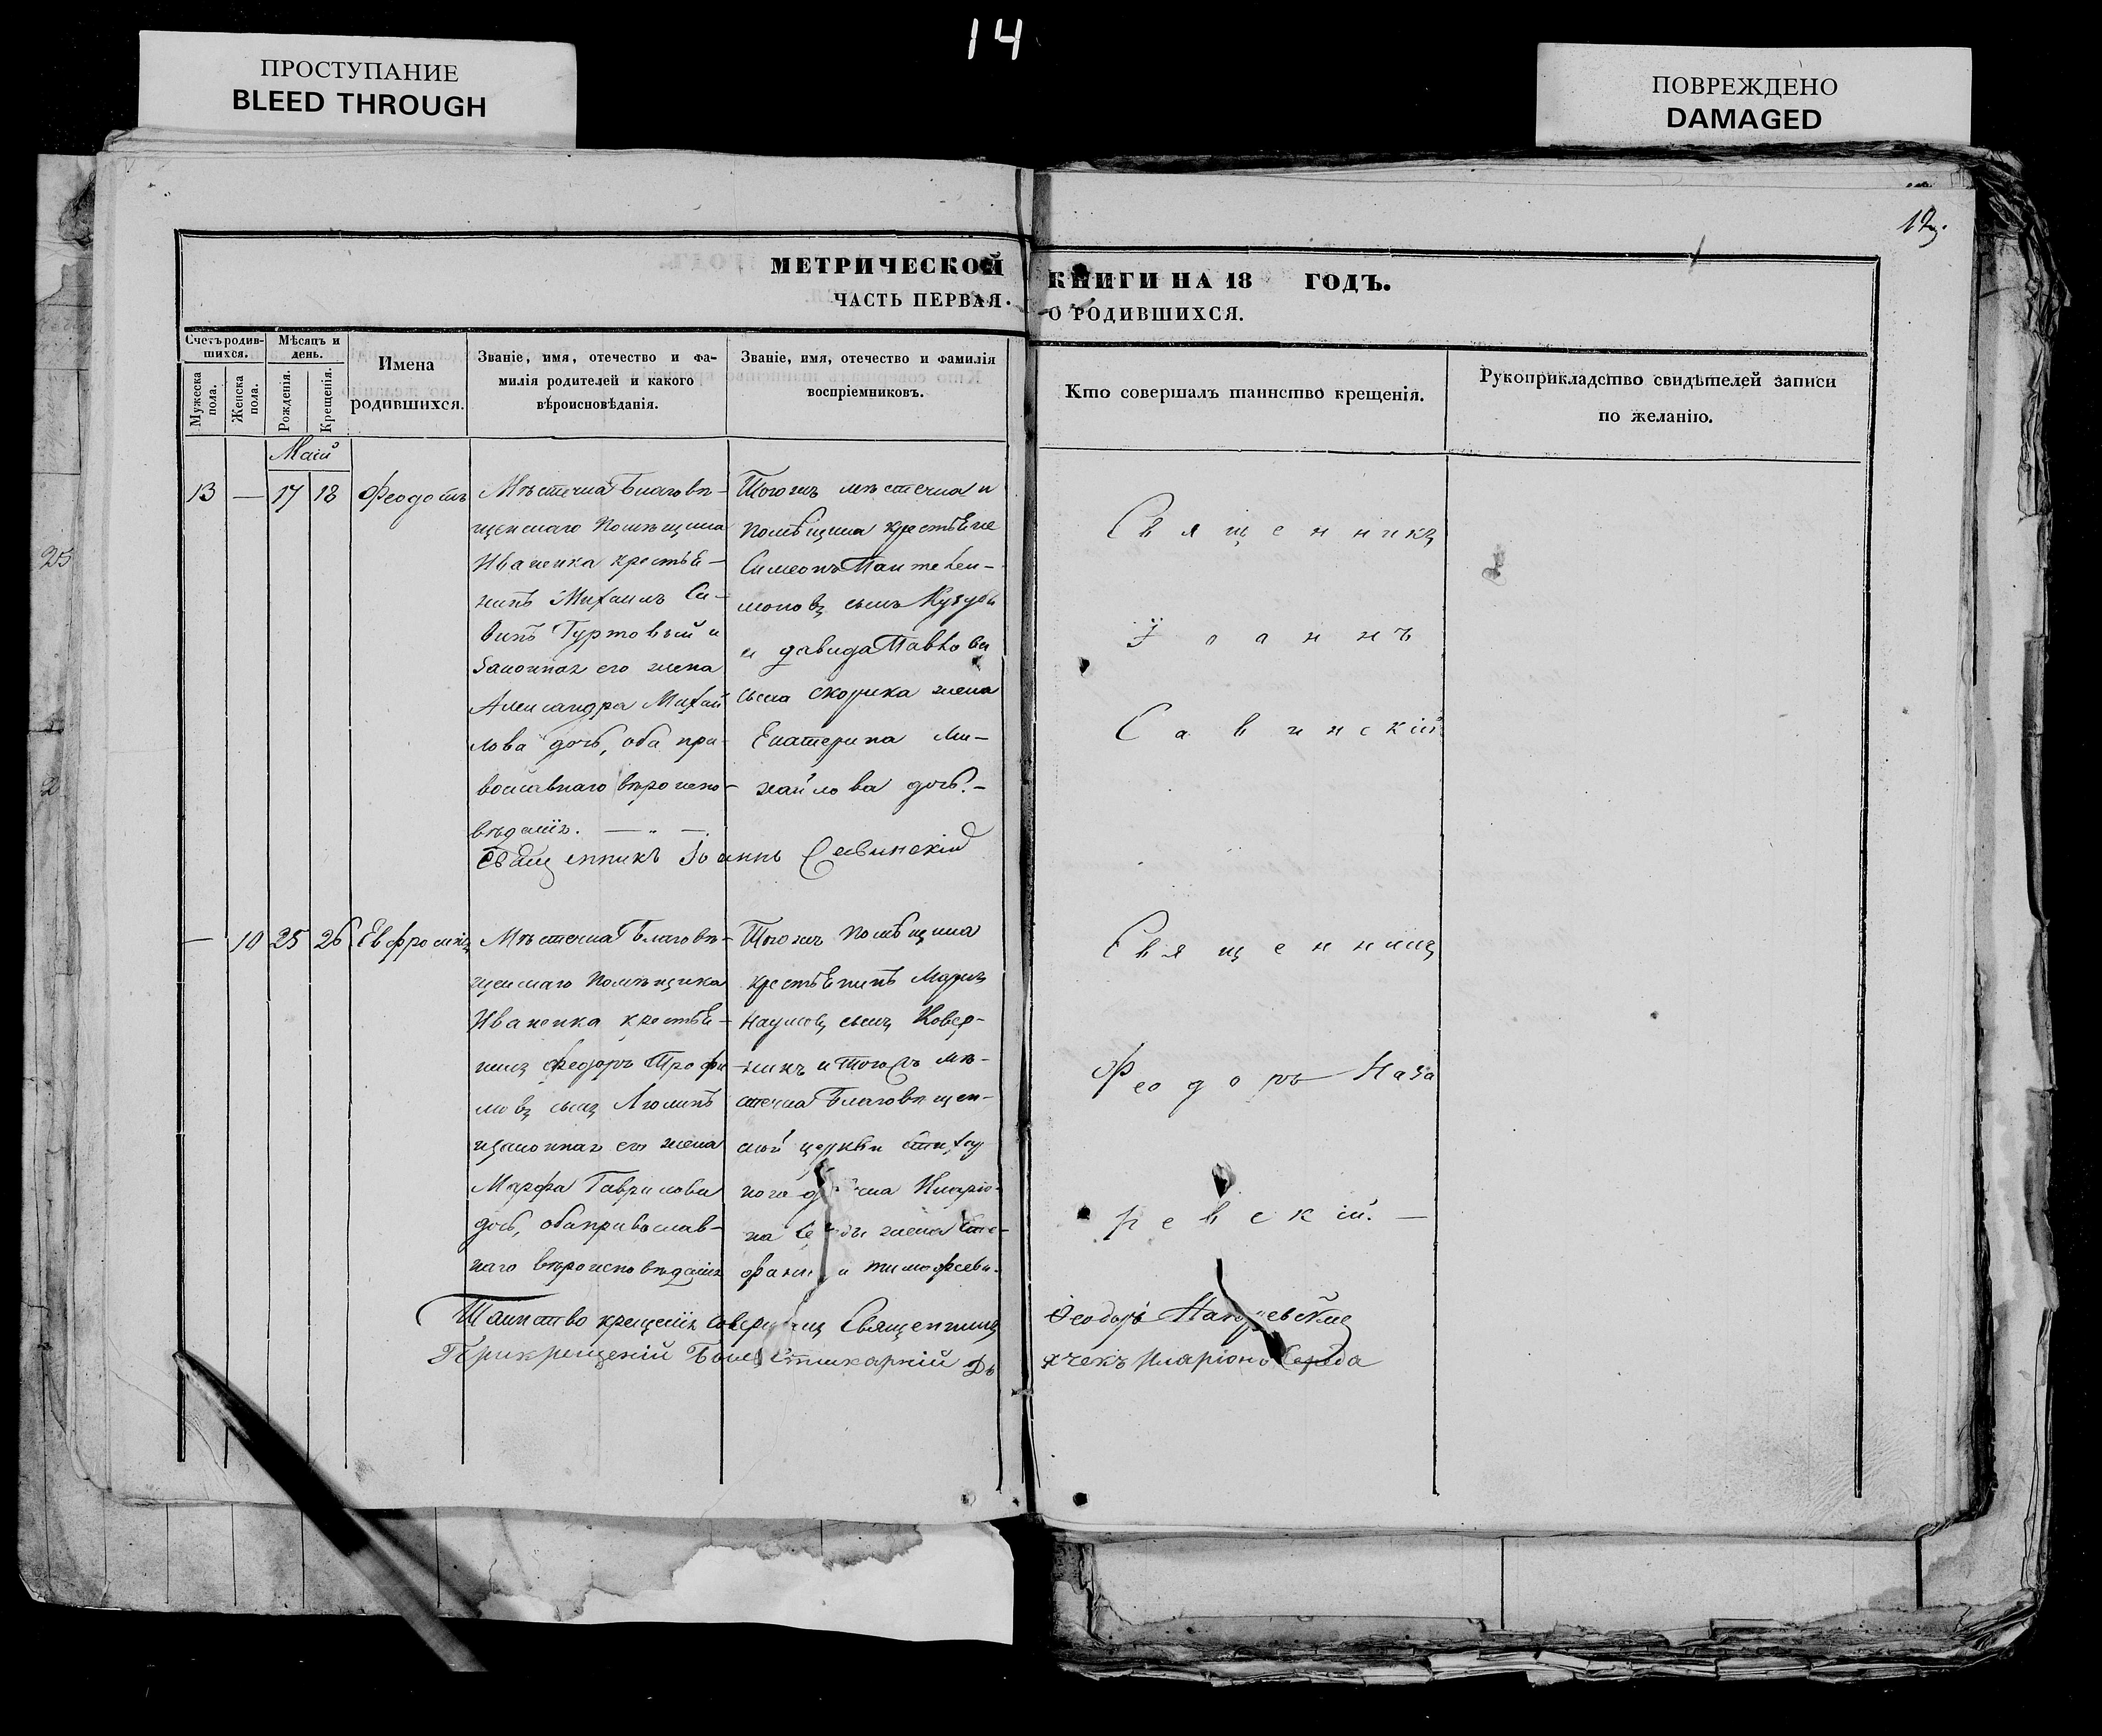 14
ПРОСТУПАНИЕ
BLEED THROUGH
ПОВРЕЖДЕНО
DAMAGED
12
МЕТРИЧЕСКОЙ КНИГИ НА 18 ГОДЪ.
ЧАСТЬ ПЕРВАЯ. О РОДИВШИХСЯ.
Счетъ родив-
шихся.
Мужеска
пола.
Женска
пола.
Мѣсяцъ и
день.
Рожденія.
Крещенія.
Имена
родившихся.
Званіе, имя, отечество и фа-
милія родителей и какого
вѣроисновѣданія.
Званіе, имя, отечество и фамилія
воспріемниковъ.
Кто совершалъ таинство крещенія.
Рукоприкладство свидѣтелей записи
по желанію.
Маій
13 — 17 18 Феодотъ
Мѣстечка Благовѣ-
щенскаго помѣщика
Иваненка крестья-
нинъ Михаилъ Са-
винъ Гуртовый и
законная его жена
Александра Михай
лова дочь, оба пра-
вославнаго вѣроиспо-
вѣданія. — " —
Тогожъ мѣстечка и
помѣщика крестьяне
Симеонъ Пантелей-
моновъ сынъ
и Давида Павлова
сына Скорика жена
Екатерина Ми-
хайлова дочь. –
Священникъ
Іоаннъ
Савинскій
Священникъ Іоаннъ Савинскій
— 10 25 26 Евфросинія
Мѣстечка Благовѣ-
щенскаго помѣщика
Иваненка крестья-
нинъ Федоръ Трофи
мовъ сынъ
законная его жена
Марфа Гаврилова
дочь, оба православ-
наго вѣроисповѣданія
Тогожъ помѣщика
крестьянинъ Марко
Наумовъ сынъ Ковер-
никъ и тогожъ мѣ-
стечка Благовѣщен-
ской церкви
жена Сте-
Тимофеева.
Священникъ
Феодоръ Наза
ревскій. —
Таинство крещенія совершилъ Священникъ Феодоръ Назаревскій
При крещеніи былъ Стихарній Дьячекъ Иларіонъ Середа
25
2